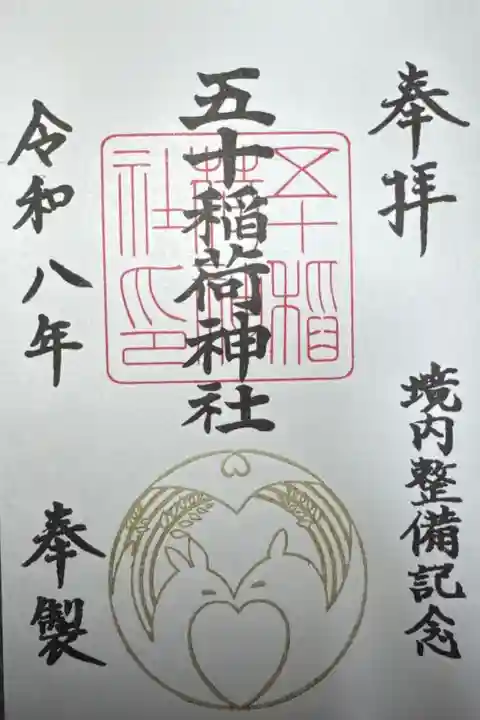 奉拝
境内整備記念
五十稲荷神社
五十稲荷神社印
令和八年
奉製